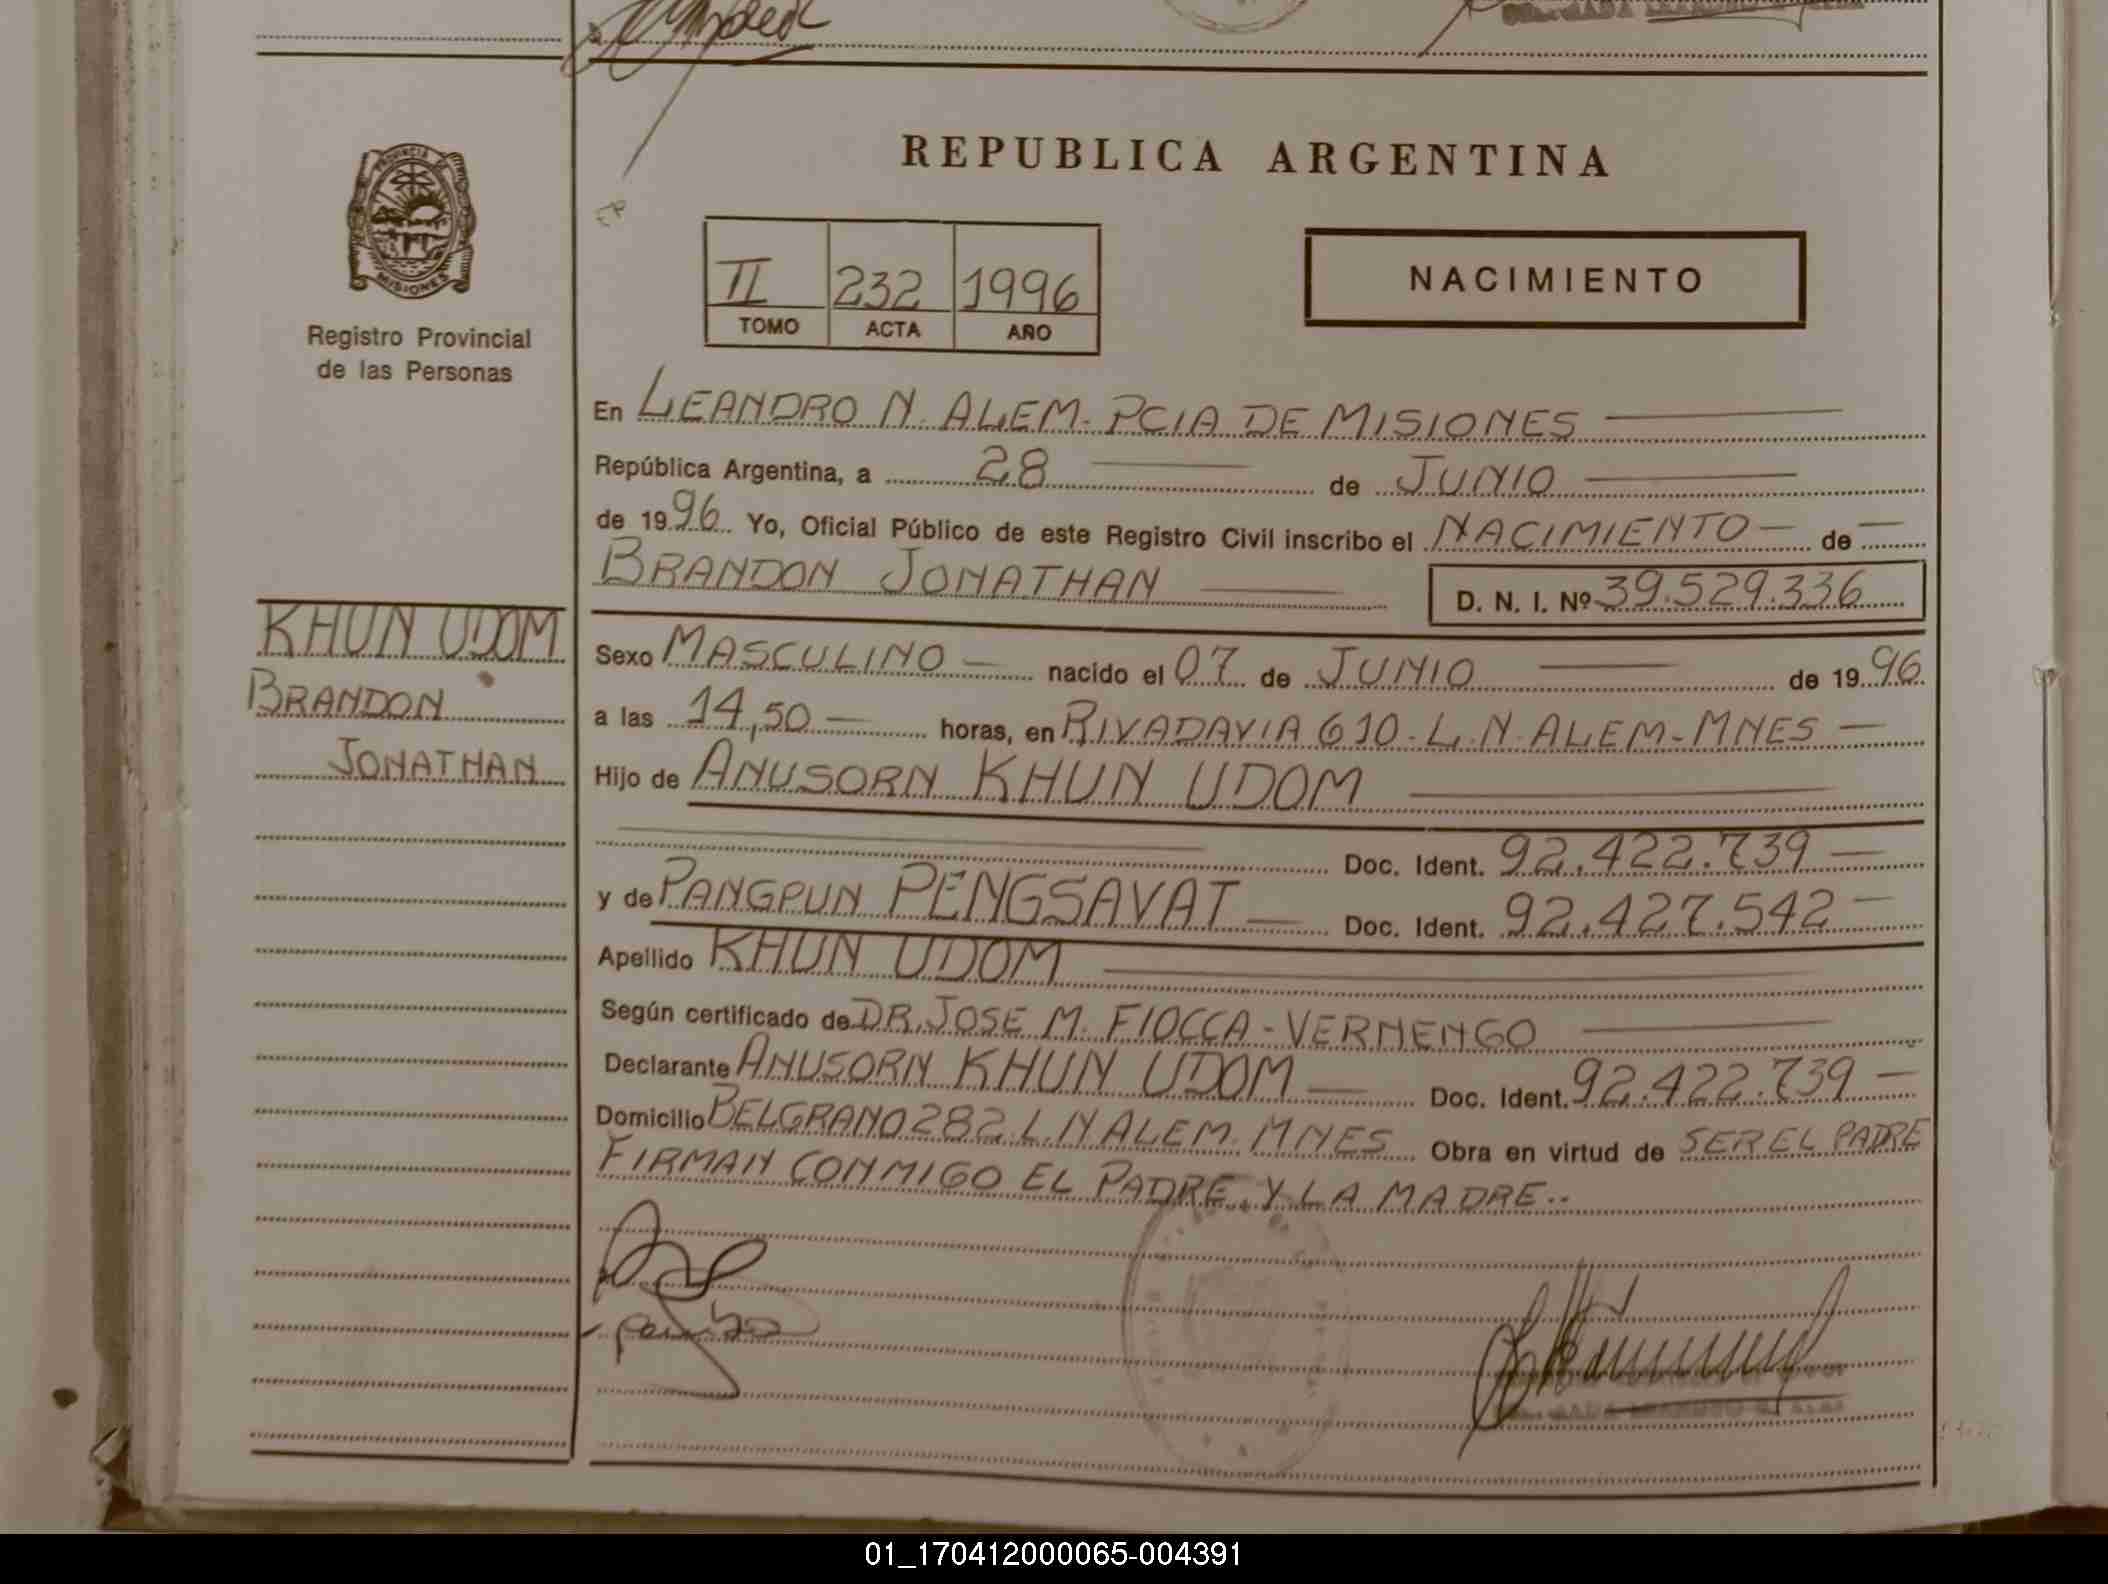 REPUBLICA ARGENTINA
PROVINCIA DE
MISIONES
Registro Provincial
de las Personas
II 232 1996
TOMO ACTA AÑO
NACIMIENTO
En LEANDRO N. ALEM - PCIA DE MISIONES
República Argentina, a 28 de JUNIO
de 1996 Yo, Oficial Público de este Registro Civil inscribo el NACIMIENTO de
BRANDON JONATHAN D. N. I. Nº 39.529.336
KHUN UDOM
BRANDON
JONATHAN
Sexo MASCULINO nacido el 07 de JUNIO de 1996
a las 14,50 horas, en RIVADAVIA 610 - L. N. ALEM - MNES
Hijo de ANUSORN KHUN UDOM
Doc. Ident. 92.422.739
y de PANGPUN PENGSAVAT Doc. Ident. 92.427.542
Apellido KHUN UDOM
Según certificado de DR. JOSE M. FIOCCA - VERNENGO
Declarante ANUSORN KHUN UDOM Doc. Ident. 92.422.739
Domicilio BELGRANO 282 L. N ALEM. MNES Obra en virtud de SER EL PADRE
FIRMAN CONMIGO EL PADRE Y LA MADRE..
01_170412000065-004391